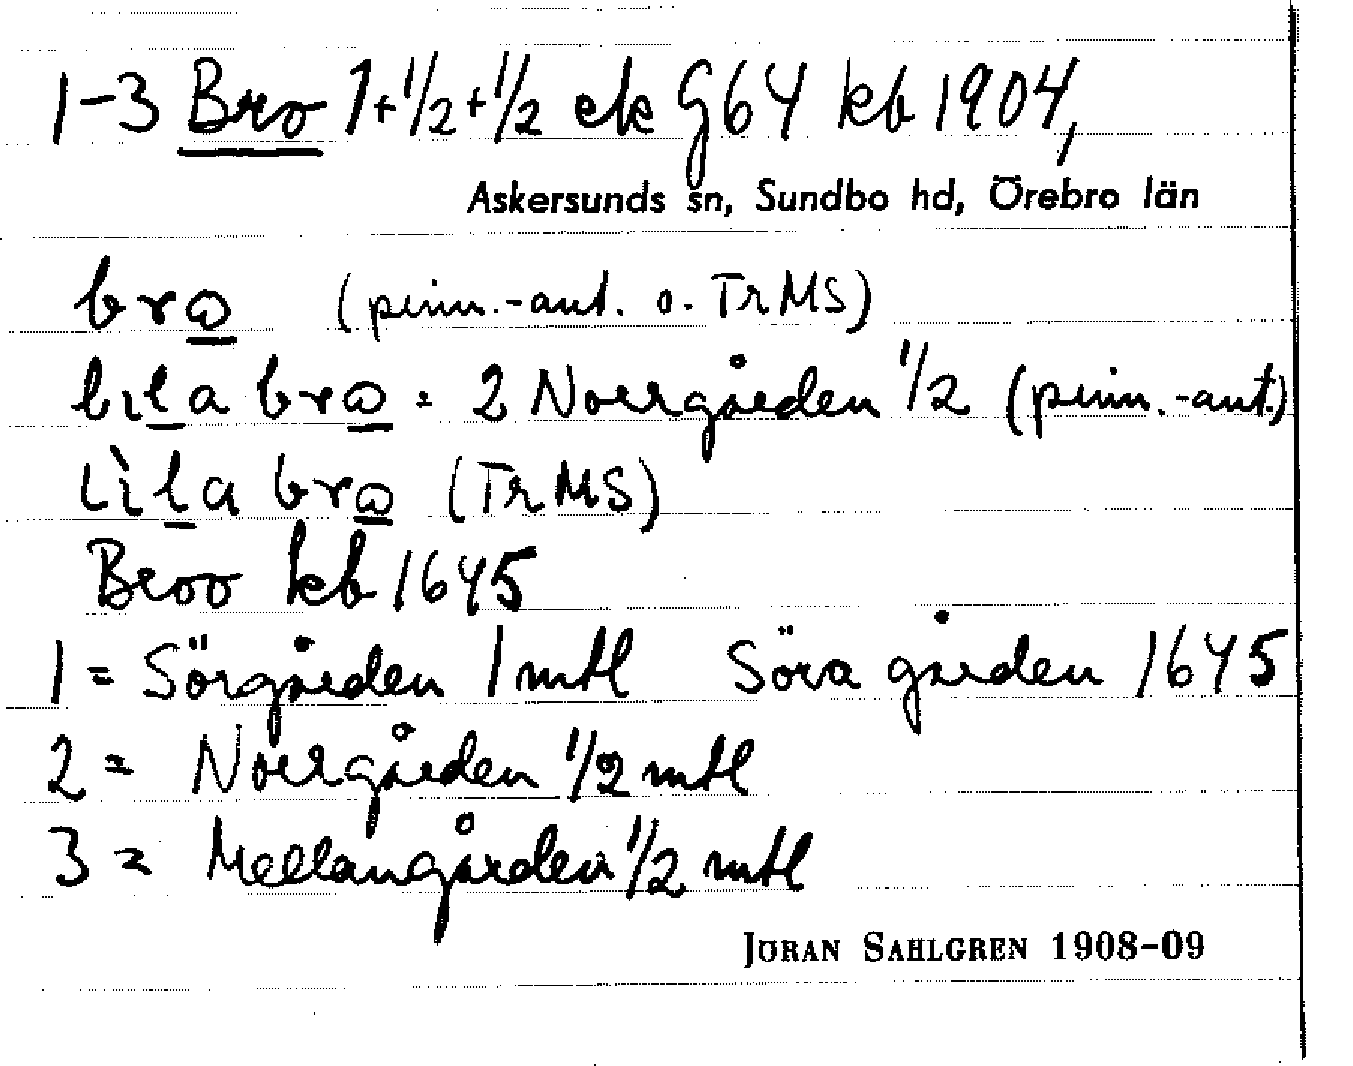 1-3 Bro 1+1/2+1/2 ek G64 kb 1904,
Askersunds sn, Sundbo hd, Örebro län
brω (prim.-ant. o. TrMS)
lıla brω = 2 Norrgården 1/2 (prim.-ant.)
lìla brω (TrMS)
Broo kb 1645
1 = Sörgården 1 mtl Söra gården 1645
2 = Norrgården 1/2 mtl
3 = Mellangården 1/2 mtl
JÖRAN SAHLGREN 1908-09